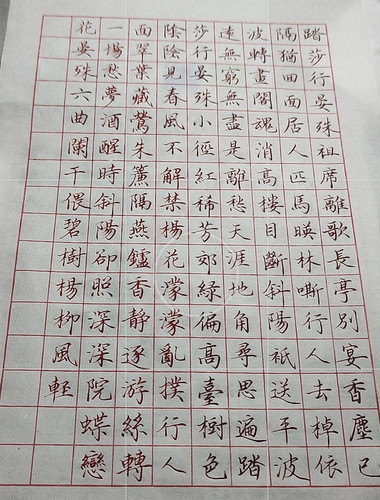 踏莎行晏殊祖席離歌長亭別宴香塵已
隔猶回面居人匹馬暎林嘶行人去棹依
波轉畫閣魂消高樓目斷斜陽祇送平波
遠無窮無盡是離愁天涯地角尋思遍踏
莎行晏殊小徑紅稀芳郊綠徧高臺樹色
陰陰見春風不解禁楊花濛濛亂撲行人
面翠葉藏鶯朱簾隔燕鑪香靜逐游絲轉
一場愁夢酒醒時斜陽卻照深深院蝶戀
花晏殊六曲闌干偎碧樹楊柳風輕